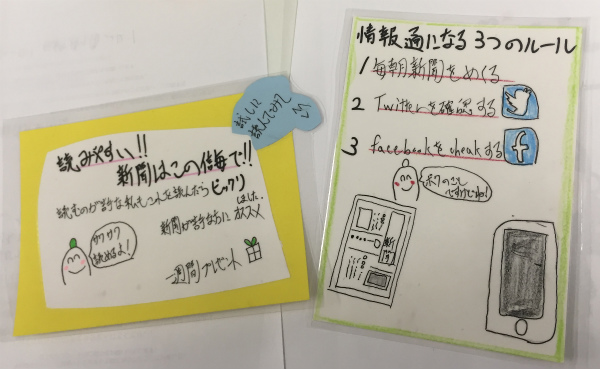 試しに
読んでみて
読みやすい!!
新聞はこの信毎で!!
読むのが苦手な私もこれを読んだら ビックリ
しました。
新聞が苦手な方に オススメ
サクサク
読めるよ!
一週間プレゼント
情報通になる 3つのルール
1 毎朝新聞をめくる
2 Twitterを確認する
3 facebookをcheakする
f
ボクのこと
新聞